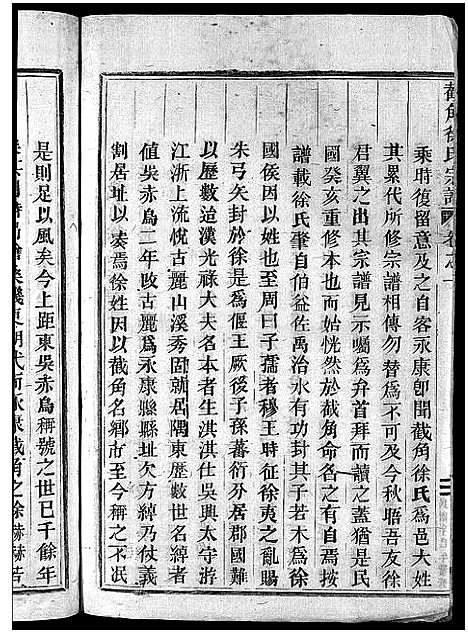 截角徐氏宗譜
卷之一
乘時復留意及之自客永康卽聞截角徐氏爲邑大姓
其累代所修宗譜相傳勿替爲不可及今秋晤吾友徐
君翼之出其宗譜見示囑爲弁首拜而讀之蓋猶是民
國癸亥重修本也而始恍然於截角命名之有自焉
譜載徐氏肇自伯益佐禹治水有功封其子若木爲徐
國侯因以姓也至周曰子孺者穆王時征徐夷之亂賜
朱弓矢封於徐是爲偃王厥後子孫蕃衍外居郡國難
以歷數追漢光祿大夫名本者生淇淇仕吳興太守游
江浙上流悅古麗山溪秀固就居隅東歷數世名璹者
值吳赤烏二年改古麗爲永康縣縣址欠方綽乃仗義
割居址以奏焉徐姓因以截角名鄉市至今稱之不泯
是則足以風矣今上距東吳赤烏稱號之世已千餘年
代而永康截角之徐赫赫若